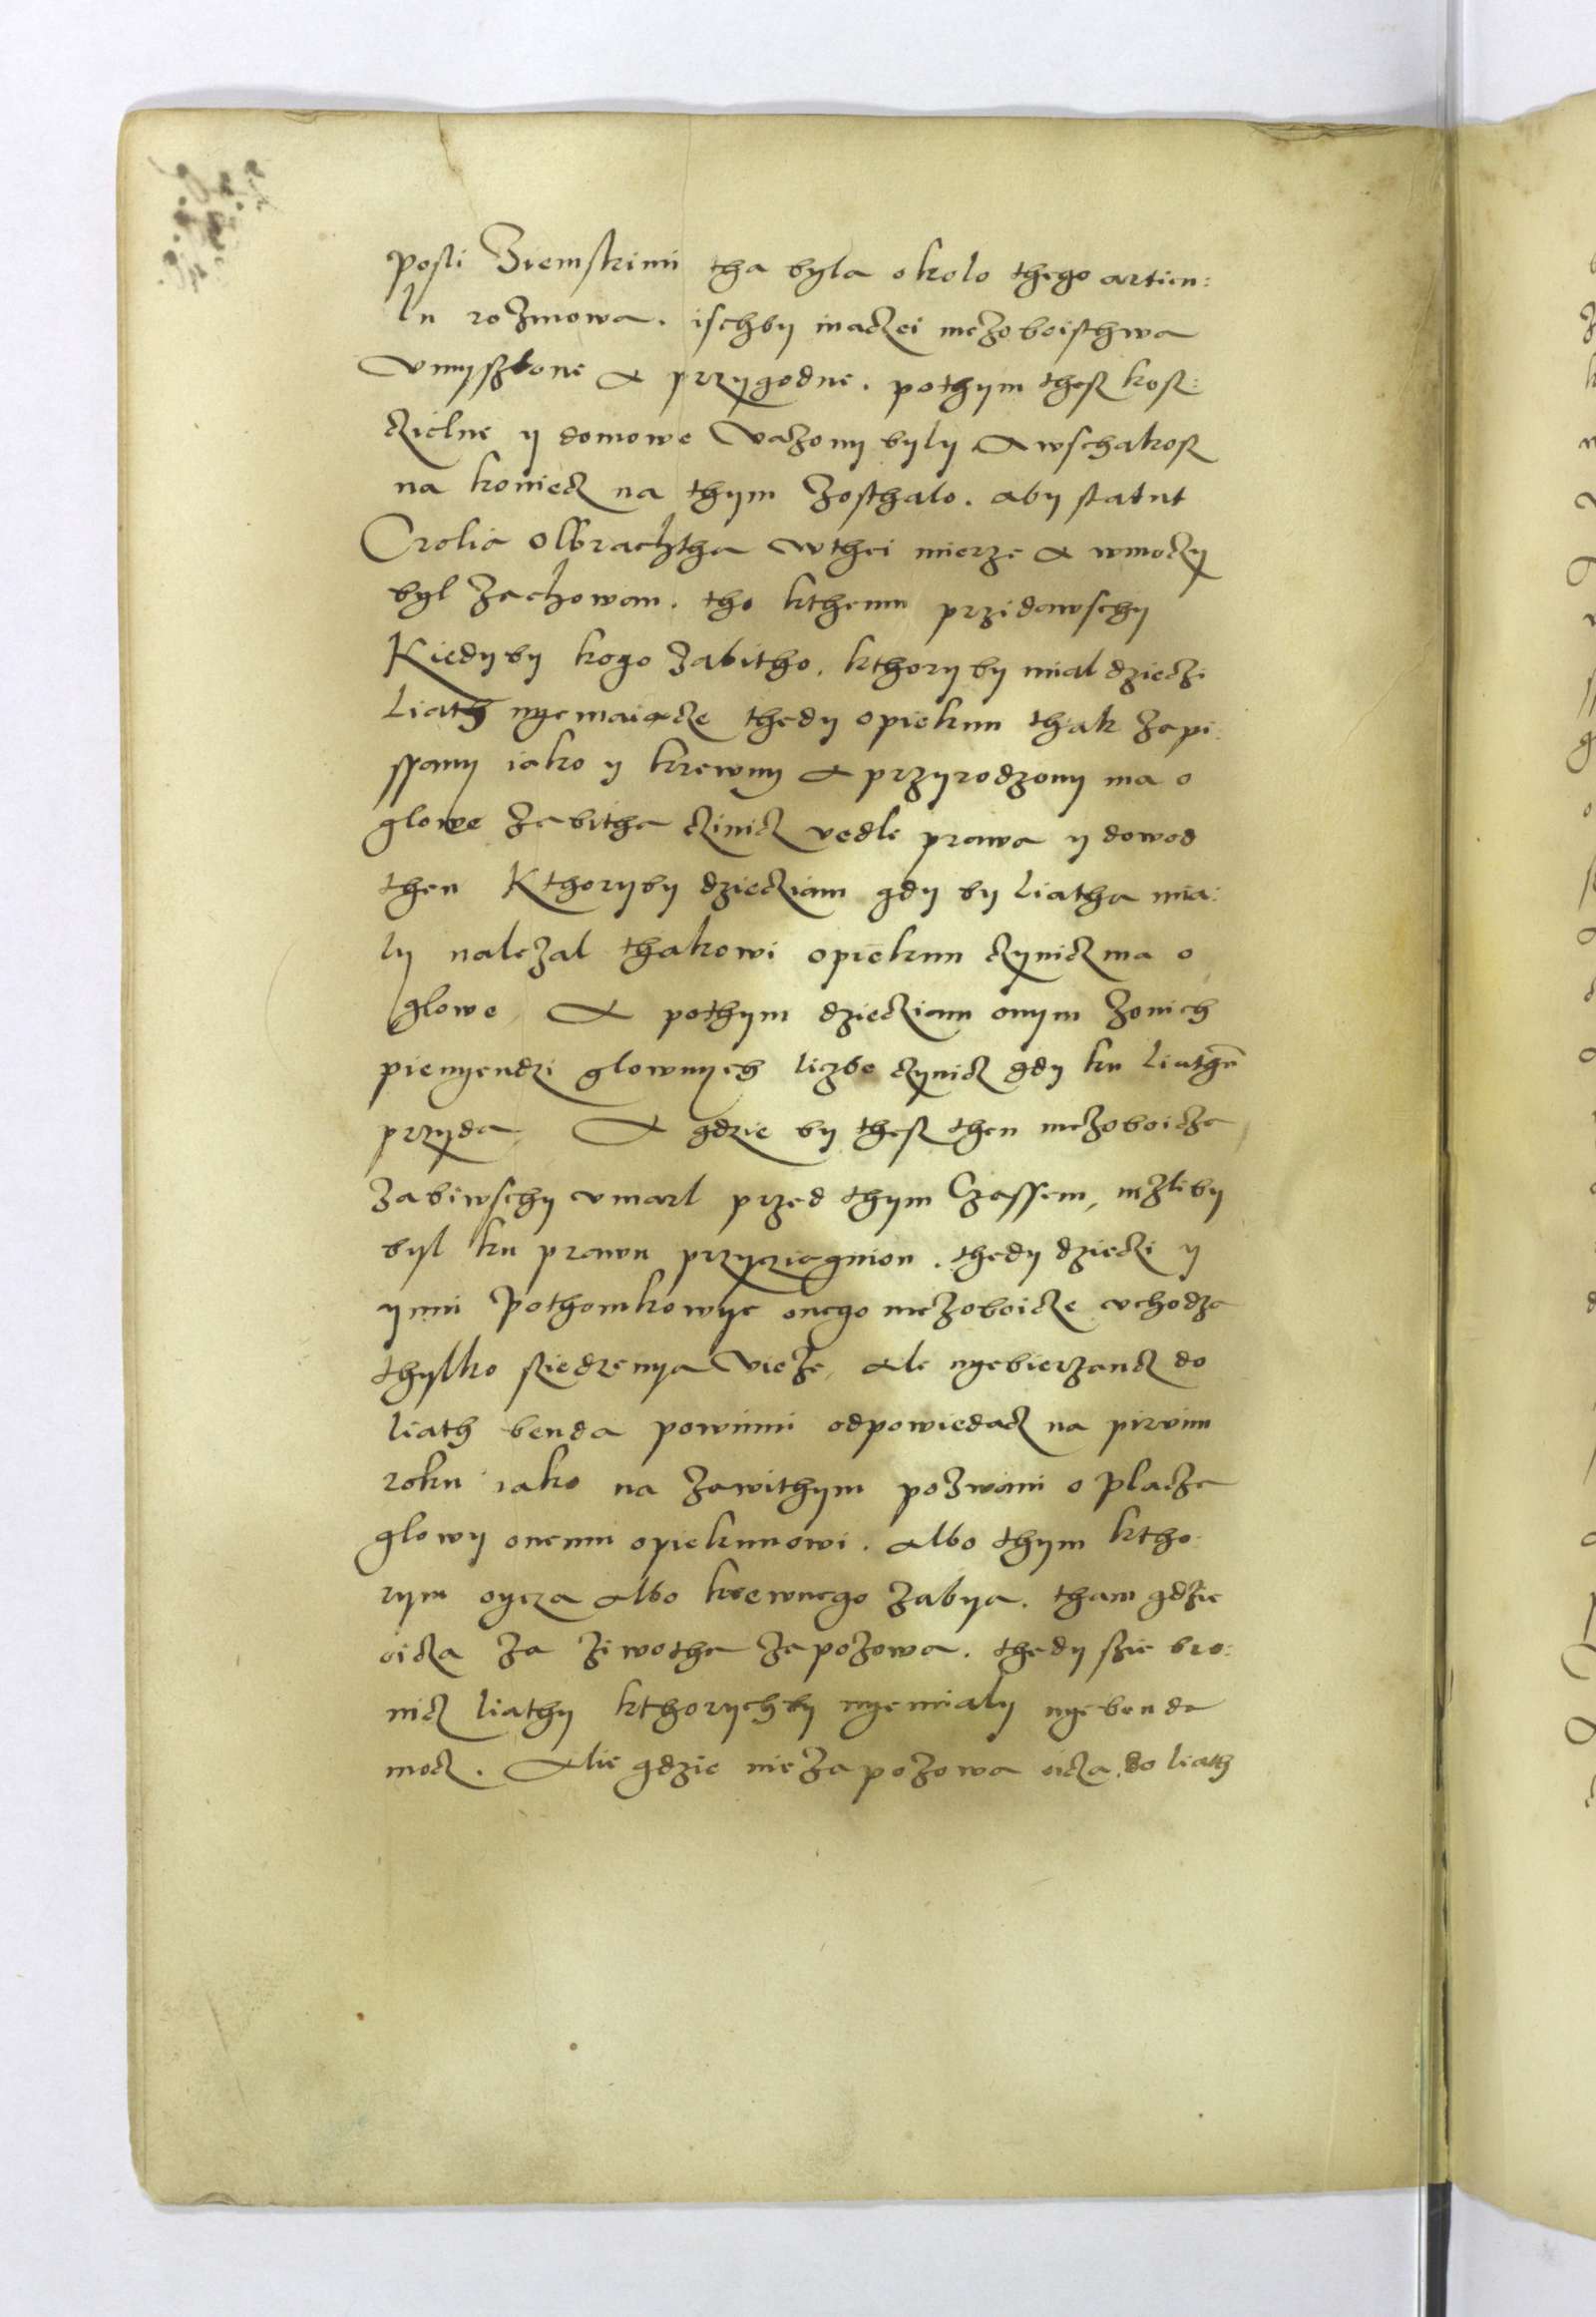 posli Ziemskimi tha byla okolo thego articu:
lu rozmowa. ischby inaczei mezoboisthwa
vmyszlone a przygodne. pothym thesz kosz:
czielne y domowe vazony byly Awschakosz
na koniecz na thym zosthalo. aby statut
Crolia Olbrachtha wthei mierze a wmoczy
byl zachowan. tho kthemu przidawschy
Kiedyby kogo zabitho. kthoryby mial dzieczi
liath nyemaiacze thedy opiekun thak zapi:
ssany iako y krewny a przyrodzony ma o
glowe zabitha czinicz vedle prawa y dowod
then kthoryby dziecziam gdy by liatha mia:
ly nalezal thakowi opiekun czynicz ma o
glowe. A pothym dziecziam onym zonich
pienyendzi glownych liczbe czynicz gdy ku liathu
przyda. A gdzie by thesz then mezoboicza
zabiwschy vmarl przed thym Czassem, nizliby
byl ku prawu przyciagnion. thedy dzieczi y
ynni pothomkowye onego mezoboicze vchodza
thylko sziedzenya vieze, ale nyebierzancz do
liath benda powinni odpowiedacz na pirvim
roku iako na zawithym pozwani o placze
glowy onemu opiekunowi. albo thym ktho:
rym oycza albo krewnego zabya. tham gdzie
oicza za ziwotha zapozowa. thedy szie bro:
nicz liathy kthorychby nyemialy nyebenda
mocz. Alie gdzie niezapozowa oicza. do liath